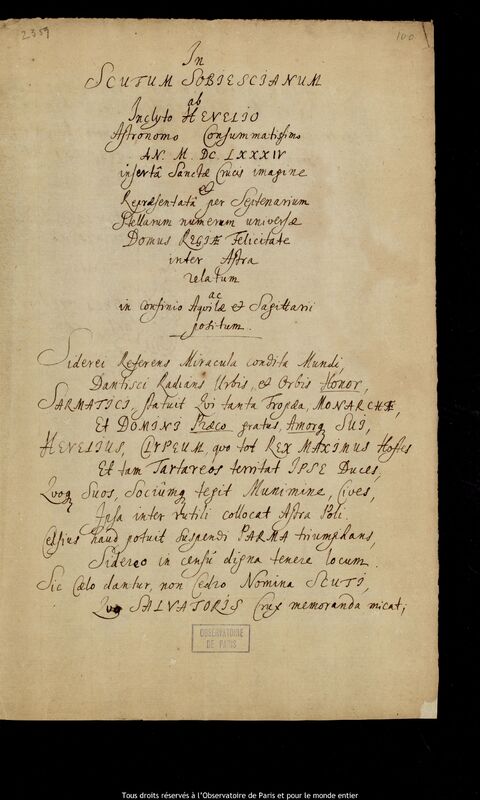 2359
100
In
SCUTUM SOBIESCIANUM
ab
Inclyto HEVELIO
Astronomo Consummatissimo
AN. M. DC. LXXXIV
insertâ Sanctæ Crucis imagine
et
Repræsentatâ per Septenarium
Stellarum numerum universæ
Domus REGIÆ Felicitate
inter Astra
relatum
ac
in Confinio Aquilæ et Sagittarii
positum.
Siderei Referens Miracula condita Mundi,
Dantisci Radians Urbis, et Orbis Honor,
SARMATICI, statuit Qui tanta Tropæa, MONARCHÆ,
Et DOMINI Præco gratus, Amorq SUI,
HEVELIUS, CLYPEUM, quo tot REX MAXIMUS Hostes
Et tam Tartareos territat IPSE Duces,
Quoq Suos, Sociûmq tegit Munimine, Cives,
Ipsa inter rutili collocat Astra Poli.
Celsius haud potuit suspendi PARMA triumphans,
Sidereo in censu digna tenere locum.
Sic Cælo dantur, non Cedro Nomina SCUTI,
Quo SALVATORIS Crux memoranda micat;
OBSERVATOIRE
DE PARIS
Tous droits réservés à l'Observatoire de Paris et pour le monde entier